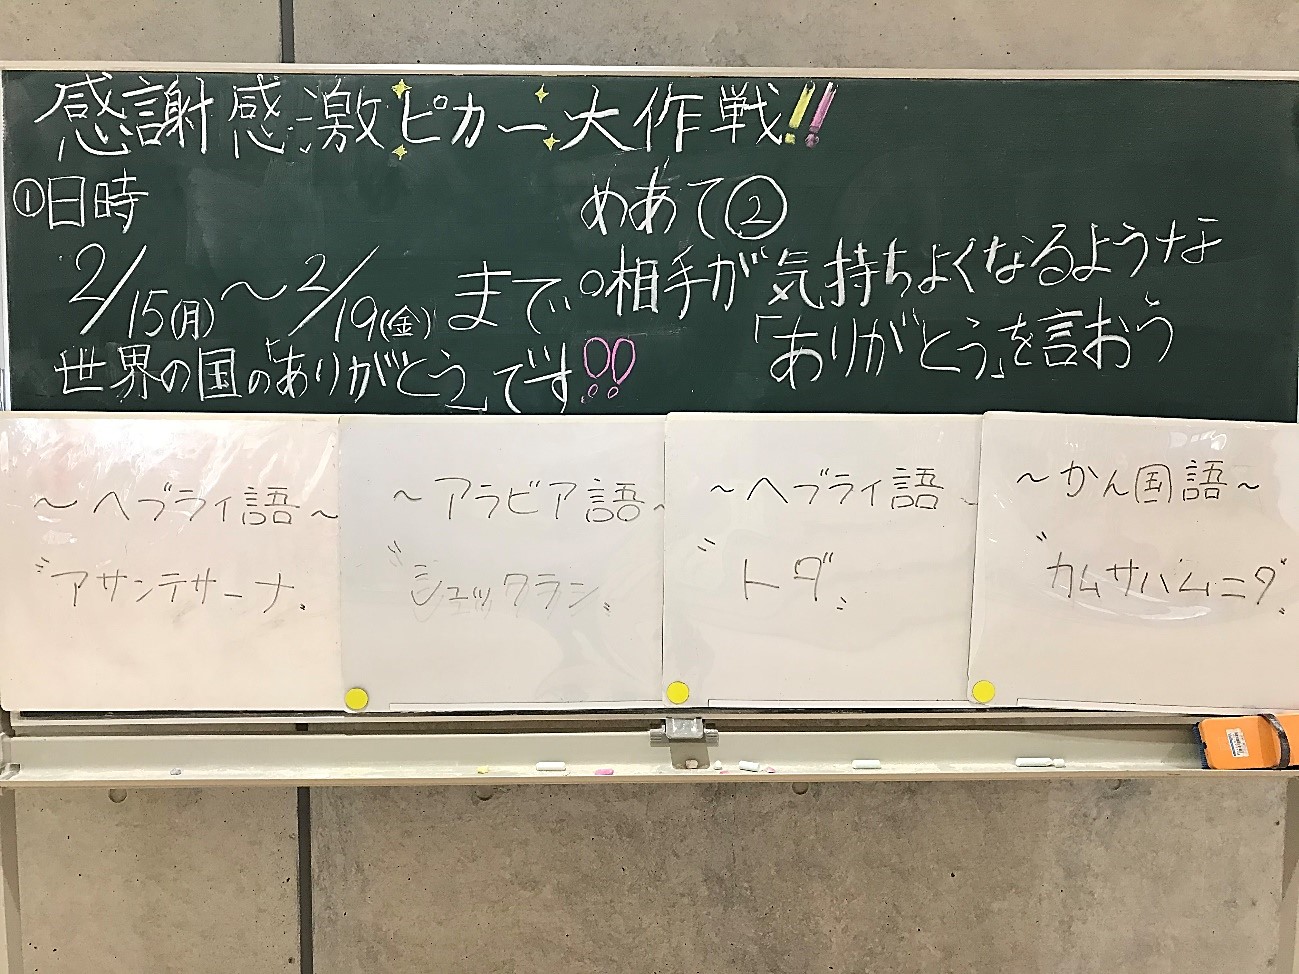 感謝感激ピカー大作戦!!
①日時
2/15(月)〜2/19(金)まで
世界の国の「ありがとう」です!!
めあて②
○相手が気持ちよくなるような
「ありがとう」を言おう
〜ヘブライ語〜
"アサンテサーナ"
〜アラビア語〜
"シュックラン"
〜ヘブライ語〜
"トダ"
〜かん国語〜
"カムサハムニダ"